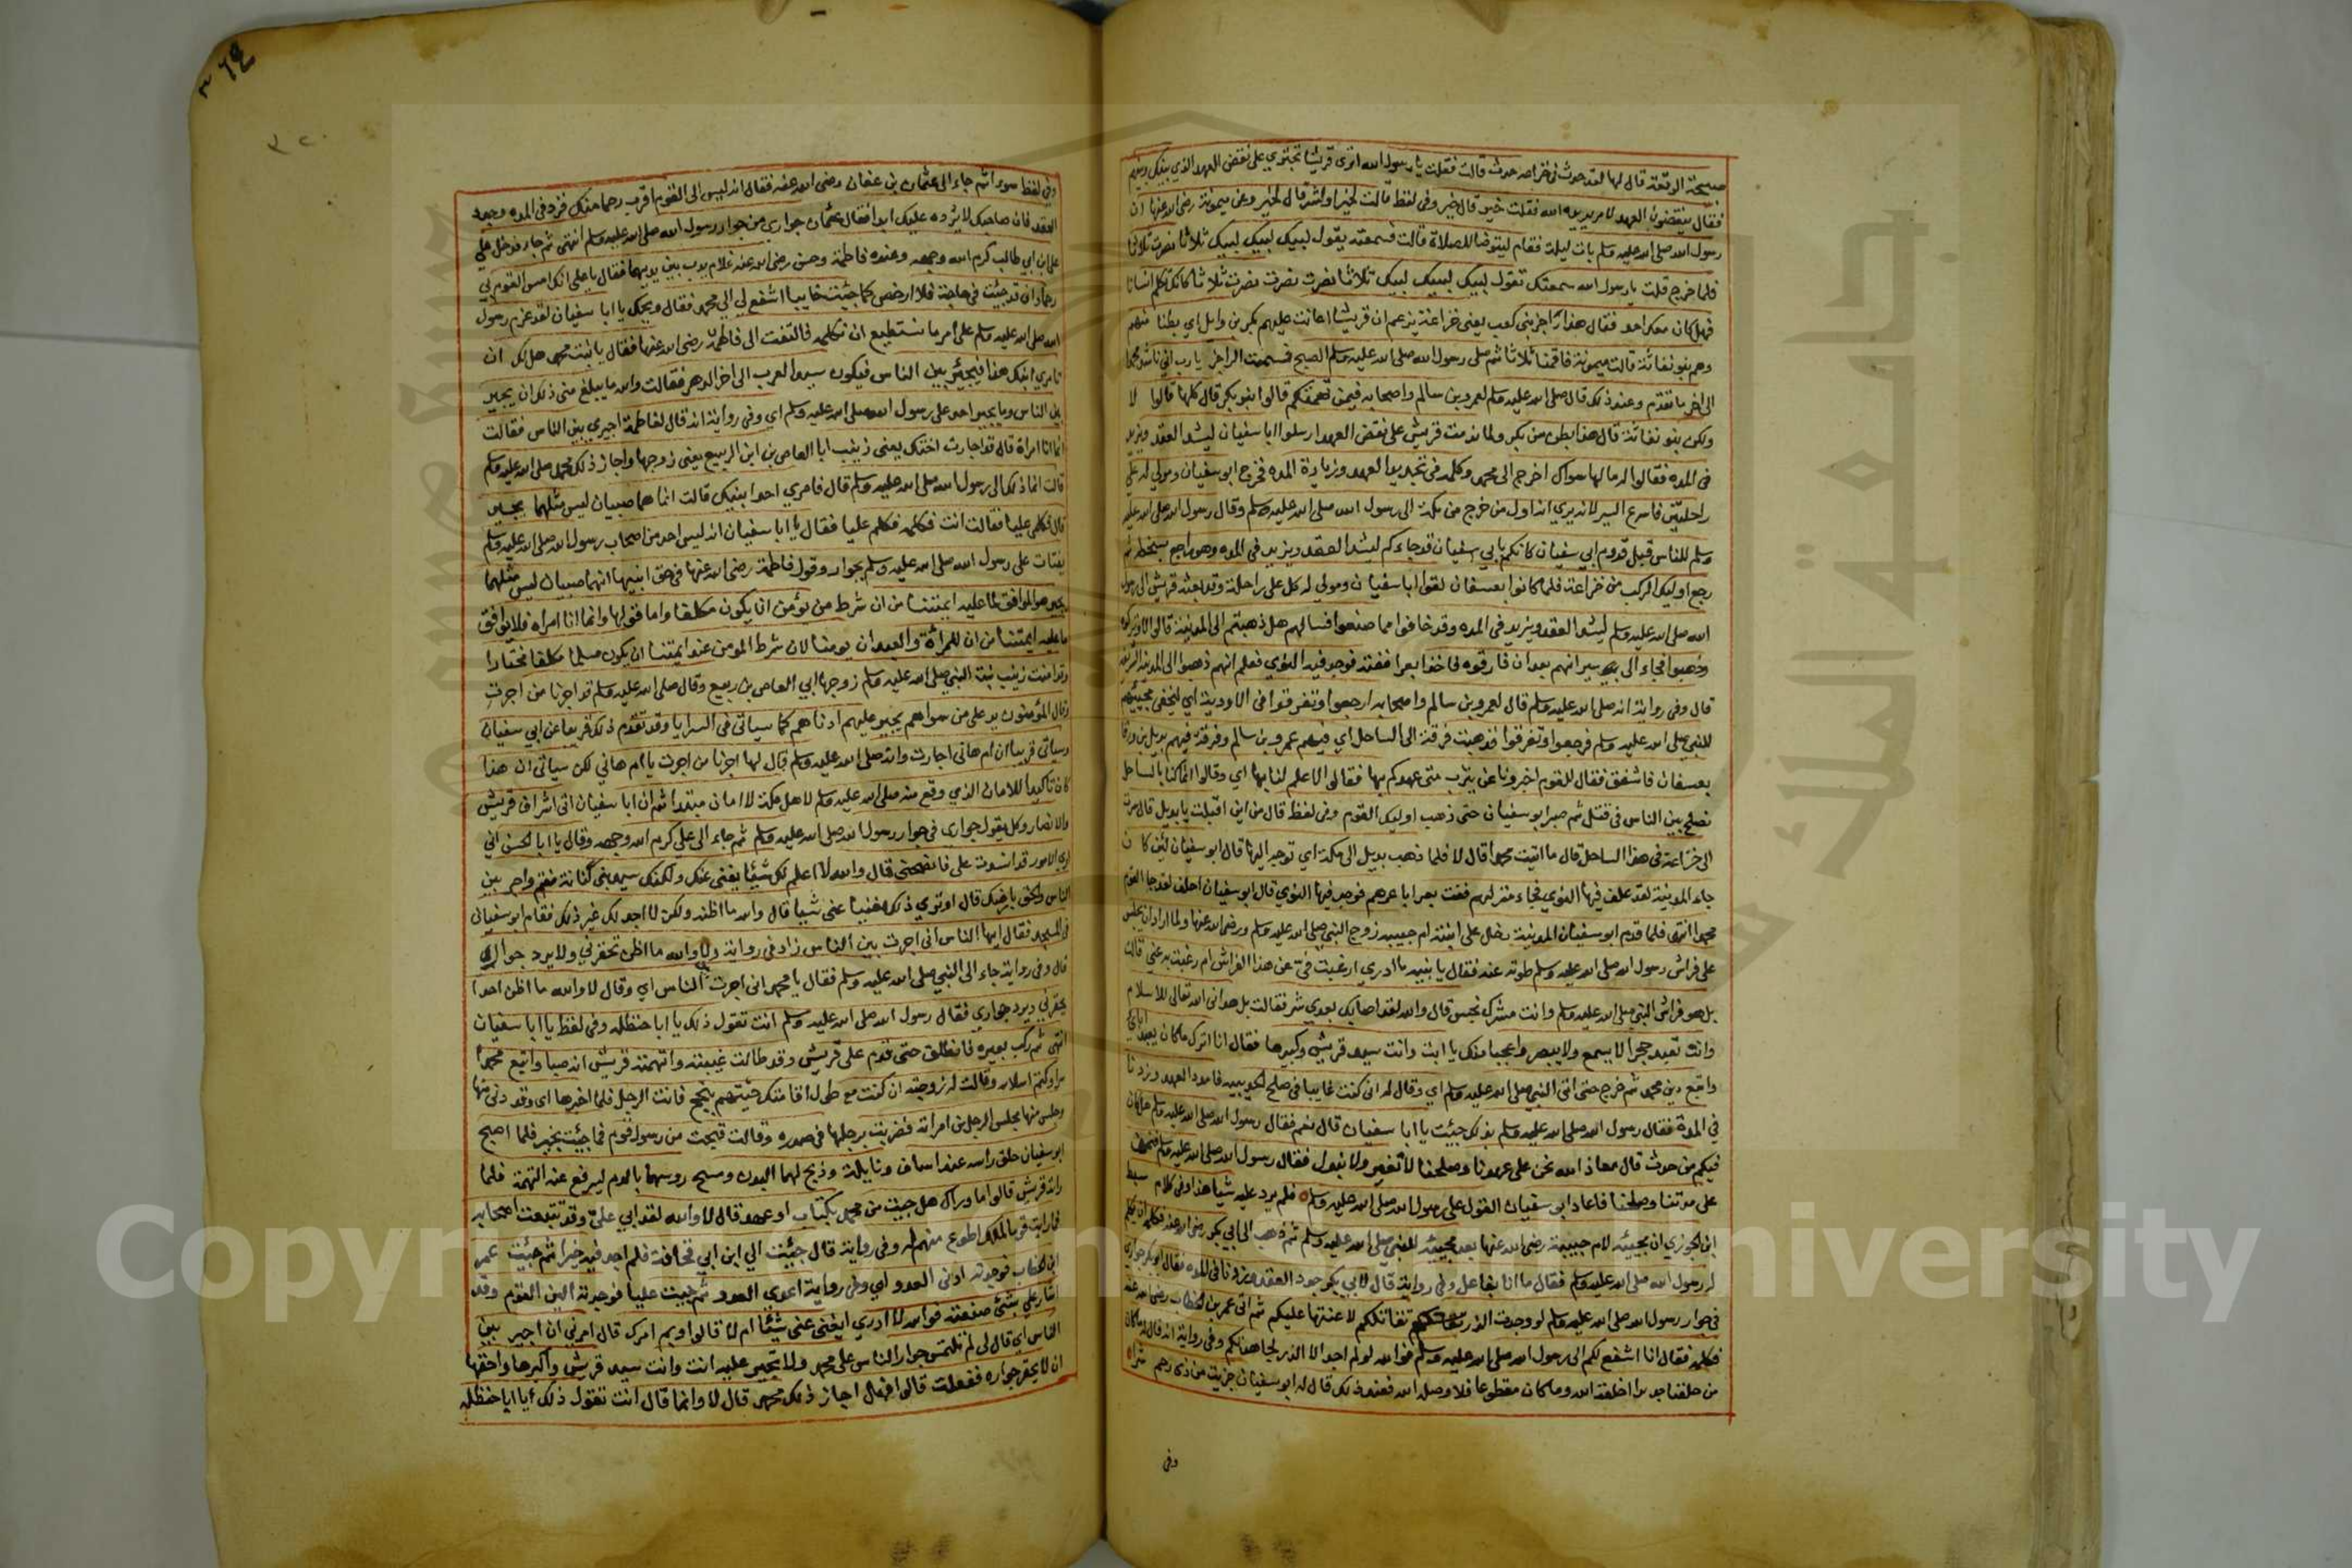 صبيحة الوقعة قال لها لقد حدث في خزاعه حدث قالت فقلت يا رسول الله اترى قريشا تجتري على نقض العهد الذي بينك وبينهم
فقال ينقضون العهد لامر يريده الله فقلت خير قال خير وفي لفظ قالت لخير او لشر قال لخير وعن ميمونة رضي الله عنها ان
رسول الله صلى الله عليه وسلم بات ليلة فقام ليتوضا للصلاة قالت فسمعته يقول لبيك لبيك لبيك ثلاثا نصرت ثلاثا
فلما خرج قلت يا رسول الله سمعتك تقول لبيك لبيك لبيك ثلاثا نصرت نصرت نصرت ثلاثا كانك تكلم انسانا
فهل كان معك احد فقال هذا راجز بني كعب يعني خزاعة يزعم ان قريشا اعانت عليهم بكر بن وايل اي بطنا منهم
وهم بنو نفاثة قالت ميمونة فاقمنا ثلاثا ثم صلى رسول الله صلى الله عليه وسلم الصبح فسمعت الراجز يا رب اني ناشد محمدا
الى اخر ما تقدم وعند ذلك قال صلى الله عليه وسلم لعمرو بن سالم واصحابه فيمن تهمتكم قالوا بنو بكر قال كلها قالوا لا
ولكن بنو نفاثة قال هذا بطن من بكر ولما ندمت قريش على نقض العهد ارسلوا ابا سفيان ليشد العقد ويزيد
في المده فقالوا له ما لها سواك اخرج الى محمد وكلمه في تجديد العهد وزيادة المده فخرج ابو سفيان ومولي له على
راحلتين فاسرع السير لانه يري انه اول من خرج من مكة الى رسول الله صلى الله عليه وسلم وقال رسول الله صلى الله عليه
وسلم للناس قبل قدوم ابي سفيان كانكم بابي سفيان قد جاءكم ليشد العقد ويزيد في المده وهو راجع بسخطه ثم
رجع اوليك الركب من خزاعة فلما كانوا بعسفان لقوا ابا سفيان ومولي له كل على راحلة وقد بعثه قريش الى رسول
الله صلى الله عليه وسلم ليشد العقد ويزيد في المده وقد خافوا مما صنعوا فسالهم هل ذهبتم الى المدينة قالوا لا وتركوه
وذهبوا فجاء الى سيرانهم بعد ان فارقوه فاخذ بعرا ففته فوجد فيه النوي فعلم انهم ذهبوا الى المدينة
قال وفي رواية انه صلى الله عليه وسلم قال لعمرو بن سالم واصحابه ارجعوا وتفرقوا في الاودية اي ليخفي مجيئهم
للنبي صلى الله عليه وسلم فرجعوا وتفرقوا فذهبت فرقة الى الساحل اي فيهم عمرو بن سالم وفرقة فيهم بديل بن ورقا
بعسفان فاشفق فقال للقوم اخبرونا عن يثرب متى عهدكم بها فقالوا لا علم لنا بها اي وقالوا انما كنا بالساحل
نصلح بين الناس في قتل ثم صبر ابو سفيان حتى ذهب اوليك القوم وفي لفظ قال من اين اقبلت يا بديل قال سرت
الى خزاعة في هذا الساحل قال ما اتيت محمدا قال لا فلما ذهب بديل الى مكة اي توجه اليها قال ابو سفيان لئن كان
جاء المدينة لقد علف فيها النوي فجاء منزلهم ففت بعرا باعرهم فوجد فيها النوي قال ابو سفيان احلف لقد جا القوم
محمدا انتهى فلما قدم ابو سفيان المدينة دخل على ابنته ام حبيبه زوج النبي صلى الله عليه وسلم ورضي الله عنها ولما اراد ان يجلس
على فراش رسول الله صلى الله عليه وسلم طوته عنه فقال يا بنيه ما ادري ارغبت بي عن هذا الفراش ام رغبت به عني قالت
بل هو فراش النبي صلى الله عليه وسلم وانت مشرك نجس قال والله لقد اصابك بعدي شر فقالت بل هداني الله تعالى للاسلام
وانت تعبد حجرا لا يسمع ولا يبصر واعجبا منك يا ابت وانت سيد قريش وكبيرها فقال انا اترك ما كان يعبد ابائي
واتبع دين محمد ثم خرج حتى اتى النبي صلى الله عليه وسلم اي وقال له اني كنت غايبا في صلح الحديبيه فامدد العهد وزدنا
في المدة فقال رسول الله صلى الله عليه وسلم بذلك جيئت يا ابا سفيان قال نعم فقال رسول الله صلى الله عليه وسلم هل كان
فيكم من حدث قال معاذ الله نحن على عهدنا وصلحنا لا نغير ولا نبدل فقال رسول الله صلى الله عليه وسلم فنحن
على مدتنا وصلحنا فاعاد ابو سفيان القول على رسول الله صلى الله عليه وسلم فلم يرد عليه شيا هذا وفي كلام سبط
ابن الجوزي ان مجيئه لام حبيبة رضي الله عنها بعد مجيئه للنبي صلى الله عليه وسلم ثم ذهب الى ابي بكر رضي الله عنه فكلمه ان يكلم
له رسول الله صلى الله عليه وسلم فقال ما انا بفاعل وفي رواية قال لابي بكر جدد العقد وزدنا في المده فقال ابو بكر جواري
في جوار رسول الله صلى الله عليه وسلم لو وجدت الذر تقاتلكم لاعنتها عليكم ثم اتى عمر بن الخطاب رضي الله عنه
فكلمه فقال انا اشفع لكم الى رسول الله صلى الله عليه وسلم فوالله لو لم اجد الا الذر لجاهدتكم وفي رواية انه قال له ما كان
من حلفنا جديدا اخلقه الله وما كان مقطوعا فلا وصله الله فعند ذلك قال له ابو سفيان جزيت من ذي رحم شرا
وفي
٣٢٠
وفي لفظ سوءا ثم جاء الى عثمان بن عفان رضي الله عنه فقال انه ليس الى القوم اقرب رحما منك فزد في المده وجدد
العقد فان صاحبك لا يرده عليك ابدا فقال عثمان جواري من جوار رسول الله صلى الله عليه وسلم انتهى ثم جاء فدخل على
علي ابن ابي طالب كرم الله وجهه وعنده فاطمة وحسن رضي الله عنه غلام يدب بين يديهما فقال يا علي انك امس القوم بي
رحما واني قد جيئت في حاجة فلا ارجعن كما جيئت خايبا اشفع لي الى محمد فقال ويحك يا ابا سفيان لقد عزم رسول
الله صلى الله عليه وسلم على امر ما نستطيع ان نكلمه فالتفت الى فاطمة رضي الله عنها فقال يا بنت محمد هل لك ان
تامري ابنك هذا فيجير بين الناس فيكون سيد العرب الى اخر الدهر فقالت والله ما يبلغ مني ذلك ان يجير
بين الناس وما يجير احد على رسول الله صلى الله عليه وسلم اي وفي رواية انه قال لفاطمة اجيري بين الناس فقالت
انما انا امراة قال قد اجارت اختك يعني زينب ابا العاص بن ابن الربيع يعني زوجها واجاز ذلك محمد صلى الله عليه وسلم
قالت انما ذلك الى رسول الله صلى الله عليه وسلم قال فامري احد ابنيك قالت انما هما صبيان ليس مثلهما يجير
قال فكلمي عليا فقالت انت فكلمه فكلم عليا فقال يا ابا سفيان انه ليس احد من اصحاب رسول الله صلى الله عليه وسلم
يفتات على رسول الله صلى الله عليه وسلم بجوار وقول فاطمة رضي الله عنها في حق ابنيها انهما صبيان ليس مثلهما
يجير هو الموافق لما عليه ايمتنا من ان شرط من يؤمن ان يكون مكلفا واما قولها وانما انا امراه فلا يوافق
ما عليه ايمتنا من ان للمراة والعبد ان يومنا لان شرط المومن عند ايمتنا ان يكون مسلما مكلفا مختارا
وقد امنت زينب بنت النبي صلى الله عليه وسلم زوجها ابي العاص بن ربيع وقال صلى الله عليه وسلم قد اجرنا من اجرت
وقال المؤمنون يد على من سواهم يجير عليهم ادناهم كما سياتي في السرايا وقد تقدم ذلك قريبا عن ابي سفيان
وسياتي قريبا ان ام هاني اجارت وانه صلى الله عليه وسلم قال لها اجرنا من اجرت يا ام هاني لكن سياتي ان هذا
كان تاكيدا للامان الذي وقع منه صلى الله عليه وسلم لاهل مكة لا امان مبتدا ثم ان ابا سفيان اتى اشراف قريش
والانصار وكل يقول جواري في جوار رسول الله صلى الله عليه وسلم ثم جاء الى علي كرم الله وجهه وقال يا ابا الحسن اني
ارى الامور قد اشتدت علي فانصحني قال والله لا اعلم لك شيئا يغني عنك ولكنك سيد بني كنانة فقم واجر بين
الناس والحق بارضك قال اوتري ذلك مغنيا عني شيا قال والله ما اظنه ولكن لا اجد لك غير ذلك فقام ابو سفيان
في المسجد فقال ايها الناس اني اجرت بين الناس زاد في رواية ولا والله ما اظن تخفرني ولا يرد جواري
قال وفي رواية جاء الى النبي صلى الله عليه وسلم فقال يا محمد اني اجرت الناس اي وقال لا والله ما اظن احدا
يخفرني ويرد جواري فقال رسول الله صلى الله عليه وسلم انت تقول ذلك يا ابا حنظله وفي لفظ يا ابا سفيان
انتهى ثم ركب بعيره فانطلق حتى قدم على قريش وقد طالت غيبته واتهمته قريش انه صبا واتبع محمدا
سرا وكتم اسلامه وقالت له زوجته ان كنت مع طول اقامتك جيئتهم بنجح فانت الرجل فلما اخبرها اي وقد دنى منها
وجلس منها مجلس الرجل من امراته فضربت برجلها في صدره وقالت قبحت من رسول قوم فما جيئت بخير فلما اصبح
ابو سفيان حلق راسه عند اساف ونايلة وذبح لهما البدن ومسح روسهما بالدم ليرفع عنه التهمة فلما
راته قريش قالوا ما وراك هل جيت من محمد بكتاب او عهد قال لا والله لقد ابي علي وقد تتبعت اصحابه
فما رايت قوما لملك اطوع منهم له وفي رواية قال جيئت الى ابن ابي قحافة فلم اجد فيه خيرا ثم جيئت عمر
ابن الخطاب فوجدته ادنى العدو اي وفي رواية اعدى العدو ثم جيت عليا فوجدته الين القوم وقد
اشار علي بشئ صنعته فوالله لا ادري ايغني عني شيئا ام لا قالوا وبم امرك قال امرني ان اجير بين
الناس اي قال لي لم تلتمس جوار الناس على محمد ولا تجير عليه انت وانت سيد قريش واكبرها واحقها
ان لا يخفر جواره ففعلت قالوا فهل اجاز ذلك محمد قال لا وانما قال انت تقول ذلك يا ابا حنظله
Copyright © King Saud University
جامعة الملك سعود